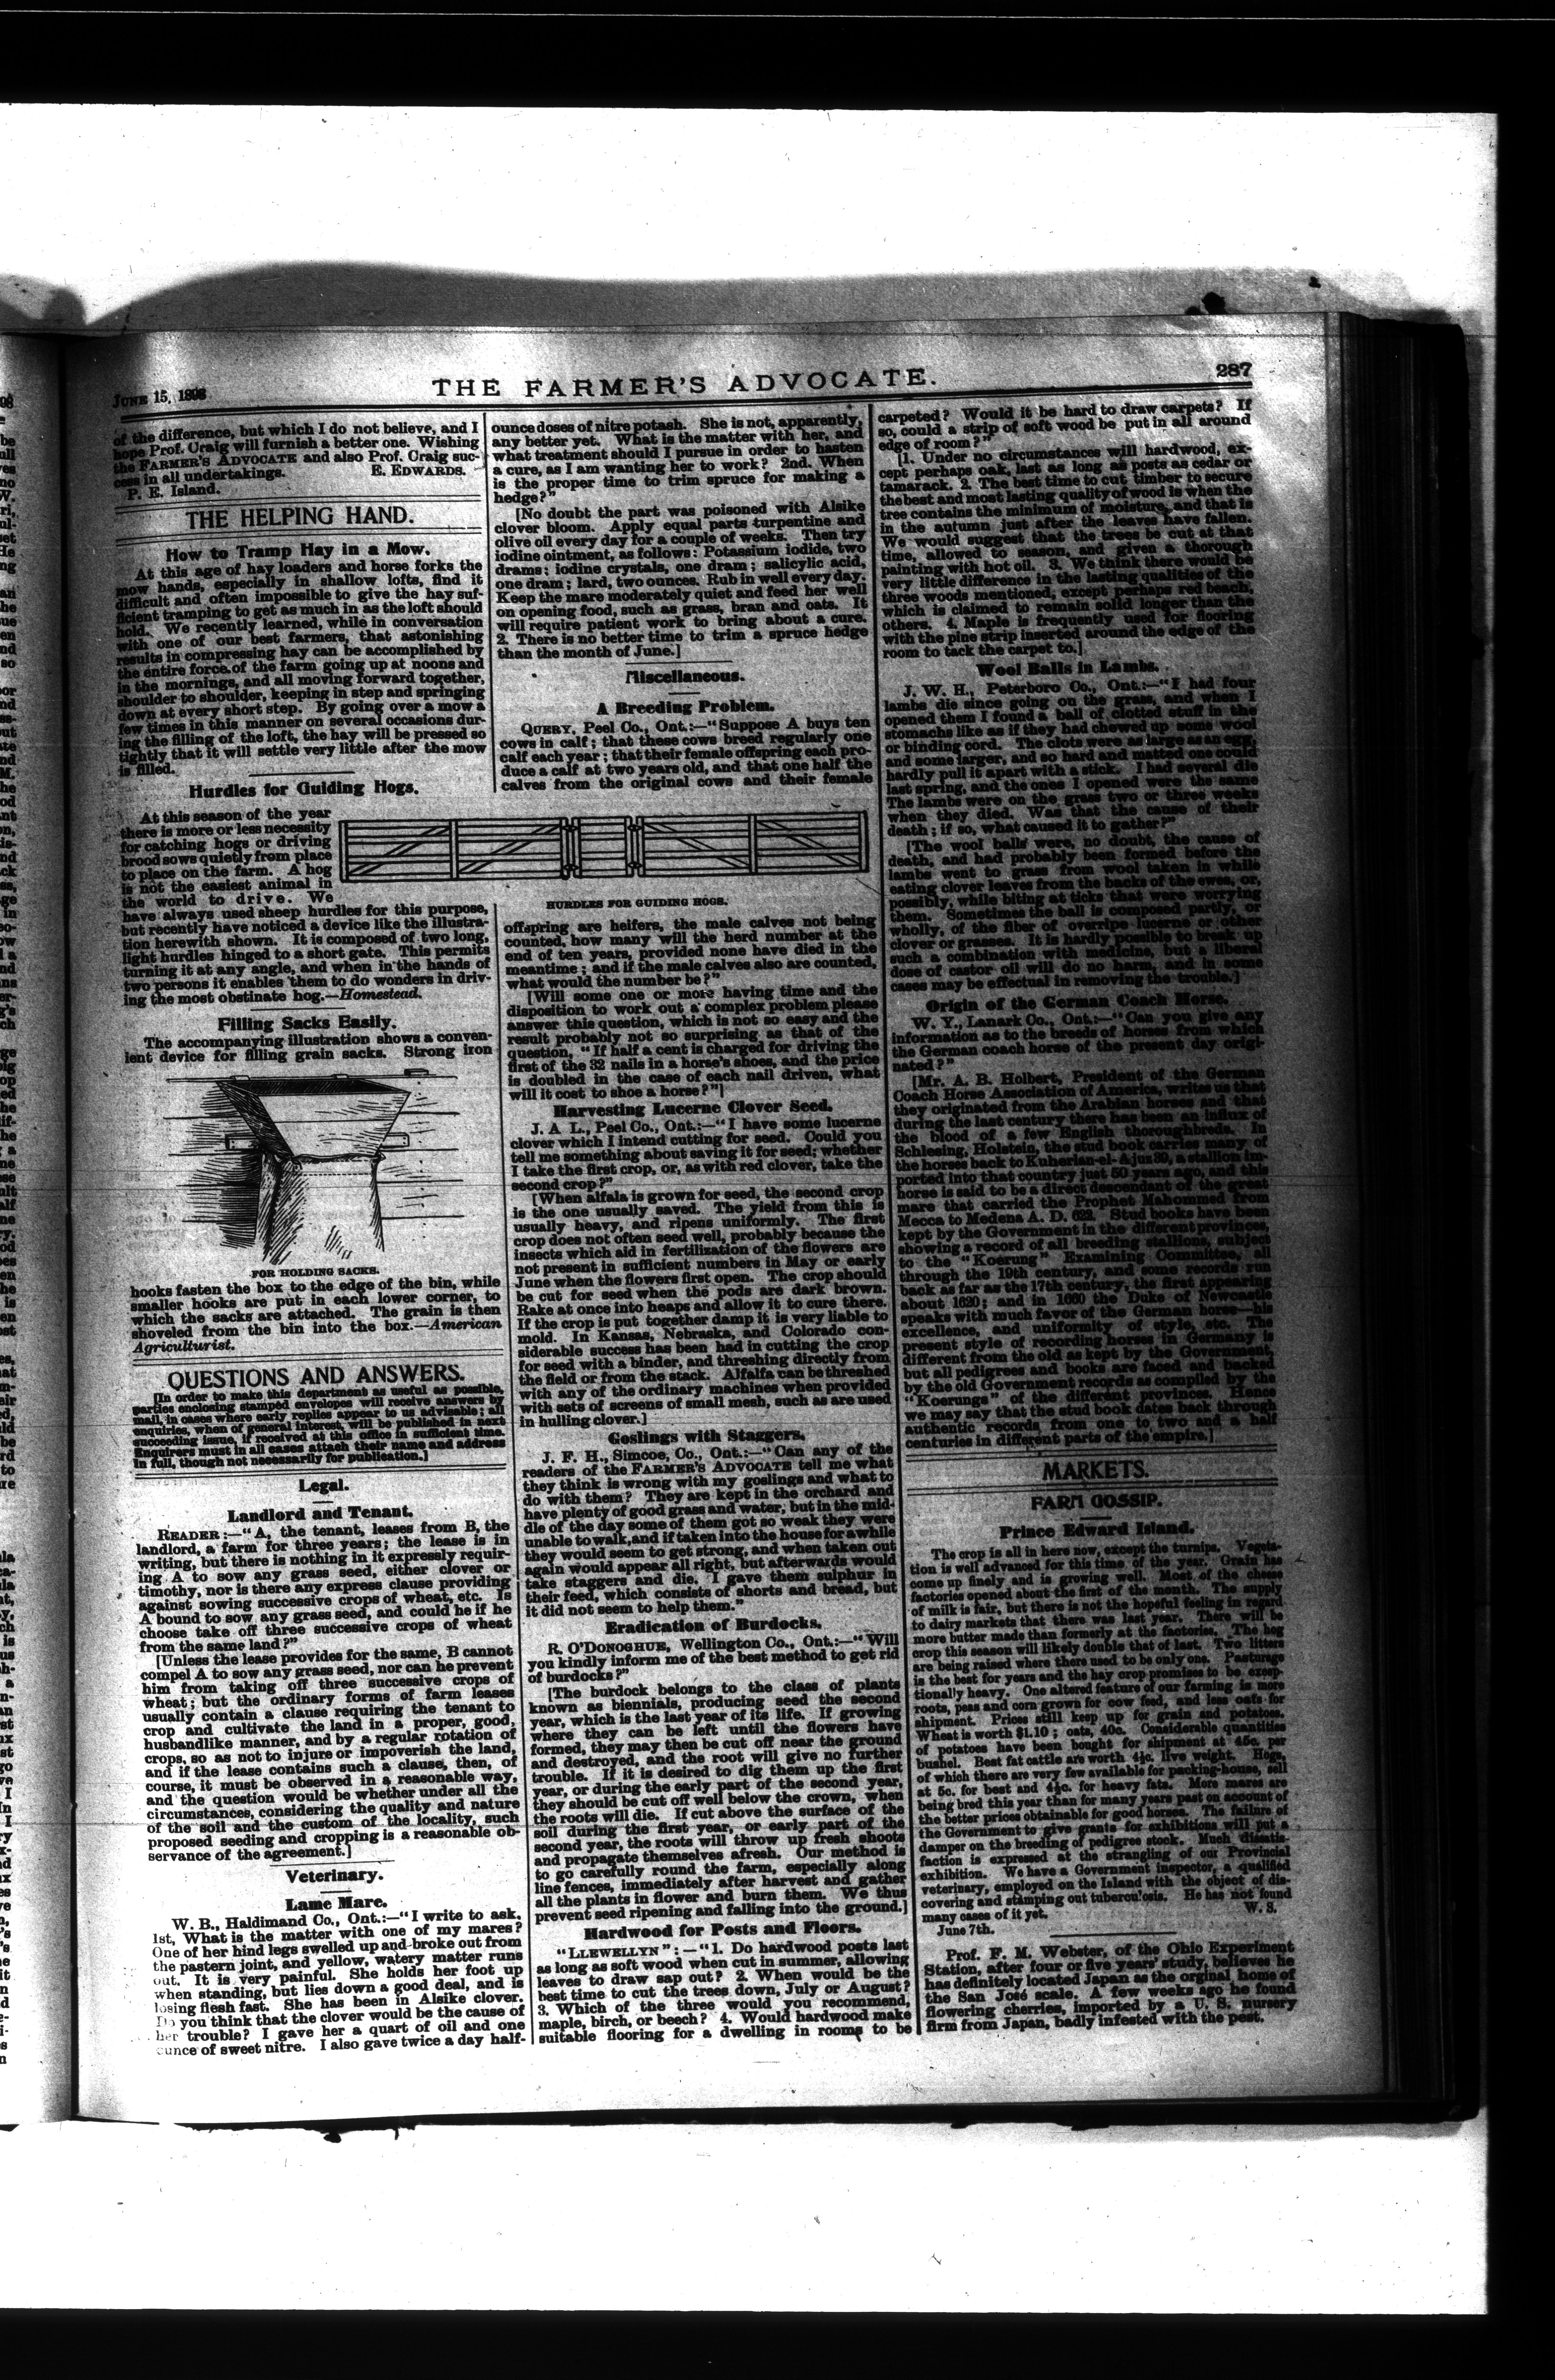 JUNE 15, 1898
THE FARMER'S ADVOCATE.
287
of the difference, but which I do not believe, and I
hope Prof. Craig will furnish a better one. Wishing
the FARMER'S ADVOCATE and also Prof. Craig suc-
cess in all undertakings. E. EDWARDS.
P. E. Island.
THE HELPING HAND.
How to Tramp Hay in a Mow.
At this age of hay loaders and horse forks the
mow hands, especially in shallow lofts, find it
difficult and often impossible to give the hay suf-
ficient tramping to get as much in as the loft should
hold. We recently learned, while in conversation
with one of our best farmers, that astonishing
results in compressing hay can be accomplished by
the entire force of the farm going up at noons and
in the mornings, and all moving forward together,
shoulder to shoulder, keeping in step and springing
down at every short step. By going over a mow a
few times in this manner on several occasions dur-
ing the filling of the loft, the hay will be pressed so
tightly that it will settle very little after the mow
is filled.
Hurdles for Guiding Hogs.
At this season of the year
there is more or less necessity
for catching hogs or driving
brood sows quietly from place
to place on the farm. A hog
is not the easiest animal in
the world to drive. We
have always used sheep hurdles for this purpose,
but recently have noticed a device like the illustra-
tion herewith shown. It is composed of two long,
light hurdles hinged to a short gate. This permits
turning it at any angle, and when in the hands of
two persons it enables them to do wonders in driv-
ing the most obstinate hog.—Homestead.
Filling Sacks Easily.
The accompanying illustration shows a conven-
ient device for filling grain sacks. Strong iron
FOR HOLDING SACKS.
hooks fasten the box to the edge of the bin, while
smaller hooks are put in each lower corner, to
which the sacks are attached. The grain is then
shoveled from the bin into the box.—American
Agriculturist.
QUESTIONS AND ANSWERS.
[In order to make this department as useful as possible,
parties enclosing stamped envelopes will receive answers by
mail, in cases where early replies appear to us advisable; all
enquiries, when of general interest, will be published in next
succeeding issue, if received at this office in sufficient time.
Enquirers must in all cases attach their name and address
in full, though not necessarily for publication.]
Legal.
Landlord and Tenant.
READER:—"A, the tenant, leases from B, the
landlord, a farm for three years; the lease is in
writing, but there is nothing in it expressly requir-
ing A to sow any grass seed, either clover or
timothy, nor is there any express clause providing
against sowing successive crops of wheat, etc. Is
A bound to sow any grass seed, and could he if he
choose take off three successive crops of wheat
from the same land?"
[Unless the lease provides for the same, B cannot
compel A to sow any grass seed, nor can he prevent
him from taking off three successive crops of
wheat; but the ordinary forms of farm leases
usually contain a clause requiring the tenant to
crop and cultivate the land in a proper, good,
husbandlike manner, and by a regular rotation of
crops, so as not to injure or impoverish the land,
and if the lease contains such a clause, then, of
course, it must be observed in a reasonable way,
and the question would be whether under all the
circumstances, considering the quality and nature
of the soil and the custom of the locality, such
proposed seeding and cropping is a reasonable ob-
servance of the agreement.]
Veterinary.
Lame Mare.
W. B., Haldimand Co., Ont.:—"I write to ask,
1st, What is the matter with one of my mares?
One of her hind legs swelled up and broke out from
the pastern joint, and yellow, watery matter runs
out. It is very painful. She holds her foot up
when standing, but lies down a good deal, and is
losing flesh fast. She has been in Alsike clover.
Do you think that the clover would be the cause of
her trouble? I gave her a quart of oil and one
ounce of sweet nitre. I also gave twice a day half-
ounce doses of nitre potash. She is not, apparently,
any better yet. What is the matter with her, and
what treatment should I pursue in order to hasten
a cure, as I am wanting her to work? 2nd. When
is the proper time to trim spruce for making a
hedge?"
[No doubt the part was poisoned with Alsike
clover bloom. Apply equal parts turpentine and
olive oil every day for a couple of weeks. Then try
iodine ointment, as follows: Potassium iodide, two
drams; iodine crystals, one dram; salicylic acid,
one dram; lard, two ounces. Rub in well every day.
Keep the mare moderately quiet and feed her well
on opening food, such as grass, bran and oats. It
will require patient work to bring about a cure.
2. There is no better time to trim a spruce hedge
than the month of June.]
Miscellaneous.
A Breeding Problem.
QUERY, Peel Co., Ont.:—"Suppose A buys ten
cows in calf; that these cows breed regularly one
calf each year; that their female offspring each pro-
duce a calf at two years old, and that one half the
calves from the original cows and their female
HURDLES FOR GUIDING HOGS.
offspring are heifers, the male calves not being
counted, how many will the herd number at the
end of ten years, provided none have died in the
meantime; and if the male calves also are counted,
what would the number be?"
[Will some one or more having time and the
disposition to work out a complex problem please
answer this question, which is not so easy and the
result probably not so surprising as that of the
question, "If half a cent is charged for driving the
first of the 32 nails in a horse's shoes, and the price
is doubled in the case of each nail driven, what
will it cost to shoe a horse?"]
Harvesting Lucerne Clover Seed.
J. A L., Peel Co., Ont.:—"I have some lucerne
clover which I intend cutting for seed. Could you
tell me something about saving it for seed; whether
I take the first crop, or, as with red clover, take the
second crop?"
[When alfala is grown for seed, the second crop
is the one usually saved. The yield from this is
usually heavy, and ripens uniformly. The first
crop does not often seed well, probably because the
insects which aid in fertilization of the flowers are
not present in sufficient numbers in May or early
June when the flowers first open. The crop should
be cut for seed when the pods are dark brown.
Rake at once into heaps and allow it to cure there.
If the crop is put together damp it is very liable to
mold. In Kansas, Nebraska, and Colorado con-
siderable success has been had in cutting the crop
for seed with a binder, and threshing directly from
the field or from the stack. Alfalfa can be threshed
with any of the ordinary machines when provided
with sets of screens of small mesh, such as are used
in hulling clover.]
Goslings with Staggers.
J. F. H., Simcoe, Co., Ont.:—"Can any of the
readers of the FARMER'S ADVOCATE tell me what
they think is wrong with my goslings and what to
do with them? They are kept in the orchard and
have plenty of good grass and water, but in the mid-
dle of the day some of them got so weak they were
unable to walk, and if taken into the house for a while
they would seem to get strong, and when taken out
again would appear all right, but afterwards would
take staggers and die. I gave them sulphur in
their feed, which consists of shorts and bread, but
it did not seem to help them."
Eradication of Burdocks.
R. O'DONOGHUE, Wellington Co., Ont.:—"Will
you kindly inform me of the best method to get rid
of burdocks?"
[The burdock belongs to the class of plants
known as biennials, producing seed the second
year, which is the last year of its life. If growing
where they can be left until the flowers have
formed, they may then be cut off near the ground
and destroyed, and the root will give no further
trouble. If it is desired to dig them up the first
year, or during the early part of the second year,
they should be cut off well below the crown, when
the roots will die. If cut above the surface of the
soil during the first year, or early part of the
second year, the roots will throw up fresh shoots
and propagate themselves afresh. Our method is
to go carefully round the farm, especially along
line fences, immediately after harvest and gather
all the plants in flower and burn them. We thus
prevent seed ripening and falling into the ground.]
Hardwood for Posts and Floors.
"LLEWELLYN":—"1. Do hardwood posts last
as long as soft wood when cut in summer, allowing
leaves to draw sap out? 2. When would be the
best time to cut the trees down, July or August?
3. Which of the three would you recommend,
maple, birch, or beech? 4. Would hardwood make
suitable flooring for a dwelling in rooms to be
carpeted? Would it be hard to draw carpets? If
so, could a strip of soft wood be put in all around
edge of room?"
[1. Under no circumstances will hardwood, ex-
cept perhaps oak, last as long as posts as cedar or
tamarack. 2. The best time to cut timber to secure
the best and most lasting quality of wood is when the
tree contains the minimum of moisture, and that is
in the autumn just after the leaves have fallen.
We would suggest that the trees be cut at that
time, allowed to season, and given a thorough
painting with hot oil. 3. We think there would be
very little difference in the lasting qualities of the
three woods mentioned, except perhaps red beach,
which is claimed to remain solid longer than the
others. 4. Maple is frequently used for flooring
with the pine strip inserted around the edge of the
room to tack the carpet to.]
Wool Balls in Lambs.
J. W. H., Peterboro Co., Ont.:—"I had four
lambs die since going on the grass, and when I
opened them I found a ball of clotted stuff in the
stomachs like as if they had chewed up some wool
or binding cord. The clots were as large as an egg,
and some larger, and so hard and matted one could
hardly pull it apart with a stick. I had several die
last spring, and the ones I opened were the same
The lambs were on the grass two or three weeks
when they died. Was that the cause of their
death; if so, what caused it to gather?"
[The wool balls were, no doubt, the cause of
death, and had probably been formed before the
lambs went to grass from wool taken in while
eating clover leaves from the backs of the ewes, or,
possibly, while biting at ticks that were worrying
them. Sometimes the ball is composed partly, or
wholly, of the fiber of overripe lucerne or other
clover or grasses. It is hardly possible to break up
such a combination with medicine, but a liberal
dose of castor oil will do no harm, and in some
cases may be effectual in removing the trouble.]
Origin of the German Coach Horse.
W. Y., Lanark Co., Ont.:—"Can you give any
information as to the breeds of horses from which
the German coach horse of the present day origi-
nated?"
[Mr. A. B. Holbert, President of the German
Coach Horse Association of America, writes us that
they originated from the Arabian horses and that
during the last century there has been an influx of
the blood of a few English thoroughbreds. In
Schlesing, Holstein, the stud book carries many of
the horses back to Kuherian-el-Ajuz 30, a stallion im-
ported into that country just 50 years ago, and this
horse is said to be a direct descendant of the great
mare that carried the Prophet Mahommed from
Mecca to Medena A. D. 622. Stud books have been
kept by the Government in the different provinces,
showing a record of all breeding stallions, subject
to the "Koerung" Examining Committee, all
through the 19th century, and some records run
back as far as the 17th century, the first appearing
about 1620; and in 1660 the Duke of Newcastle
speaks with much favor of the German horse—his
excellence, and uniformity of style, etc. The
present style of recording horses in Germany is
different from the old as kept by the Government,
but all pedigrees and books are faced and backed
by the old Government records as compiled by the
"Koerungs" of the different provinces. Hence
we may say that the stud book dates back through
authentic records from one to two and a half
centuries in different parts of the empire.]
MARKETS.
FARM GOSSIP.
Prince Edward Island.
The crop is all in here now, except the turnips. Vegeta-
tion is well advanced for this time of the year. Grain has
come up finely and is growing well. Most of the cheese
factories opened about the first of the month. The supply
of milk is fair, but there is not the hopeful feeling in regard
to dairy markets that there was last year. There will be
more butter made than formerly at the factories. The hog
crop this season will likely double that of last. Two litters
are being raised where there used to be only one. Pasturage
is the best for years and the hay crop promises to be excep-
tionally heavy. One altered feature of our farming is more
roots, peas and corn grown for cow feed, and less oats for
shipment. Prices still keep up for grain and potatoes.
Wheat is worth $1.10; oats, 40c. Considerable quantities
of potatoes have been bought for shipment at 45c. per
bushel. Best fat cattle are worth 4½c. live weight. Hogs,
of which there are very few available for packing-house, sell
at 5c. for best and 4½c. for heavy fats. More mares are
being bred this year than for many years past on account of
the better prices obtainable for good horses. The failure of
the Government to give grants for exhibitions will put a
damper on the breeding of pedigree stock. Much dissatis-
faction is expressed at the strangling of our Provincial
exhibition. We have a Government inspector, a qualified
veterinary, employed on the Island with the object of dis-
covering and stamping out tuberculosis. He has not found
many cases of it yet. W. S.
June 7th.
Prof. F. M. Webster, of the Ohio Experiment
Station, after four or five years' study, believes he
has definitely located Japan as the orginal home of
the San José scale. A few weeks ago he found
flowering cherries, imported by a U. S. nursery
firm from Japan, badly infested with the pest.